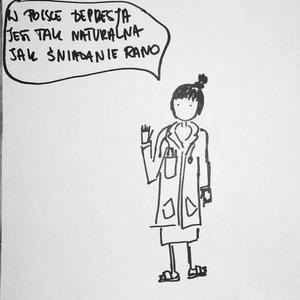 W POLSCE DEPRESJA
JEST TAK NATURALNA
JAK ŚNIADANIE RANO